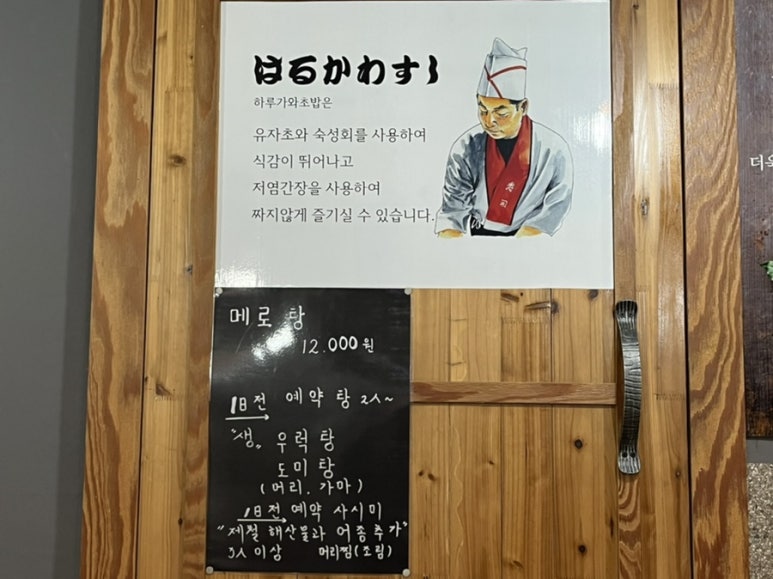 はるかわすし
하루가와초밥은
유자초와 숙성회를 사용하여
식감이 뛰어나고
저염간장을 사용하여
짜지않게 즐기실 수 있습니다.
寿司
더욱
메로탕
12.000원
1日전 예약 탕 2人~
"생" 우럭탕
도미탕
(머리. 가마)
1日전 예약 사시미
"제철 해산물과 어종추가"
3人 이상 머리찜(조림)